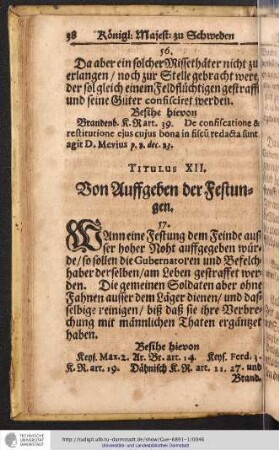 38 Königl: Majest: zu Schweden
56.
Da aber ein solcher Missethäter nicht zu
erlangen / noch zur Stelle gebracht were,
der sol gleich einem Feldflüchtigen gestrafft
und seine Güter confisciret werden.
Besihe hievon
Brandenb. K. R art. 39. De confiscatione &
restitutione ejus cujus bona in fiscũ redacta sunt
agit D. Mevius p. 2. dec. 23.
TITULUS XII.
Von Auffgeben der Festun-
gen.
57.
WAnn eine Festung dem Feinde aus-
ser hoher Noht auffgegeben wür-
de / so sollen die Gubernatoren und Befelch-
haber derselben / am Leben gestraffet wer-
den. Die gemeinen Soldaten aber ohne
Fahnen ausser dem Läger dienen / und das-
selbige reinigen / biß daß sie ihre Verbre-
chung mit männlichen Thaten ergäntzet
haben.
Besihe hievon
Keys. Max. 2. Ar. Br. art. 14. Keys. Ferd. 3.
K. R. art. 19. Dähnisch K. R. art. 21. 27. und
Brand.
TECHNISCHE
UNIVERSITÄT
DARMSTADT
http://tudigit.ulb.tu-darmstadt.de/show/Gue-6891-1/0046
Universitäts- und Landesbibliothek Darmstadt